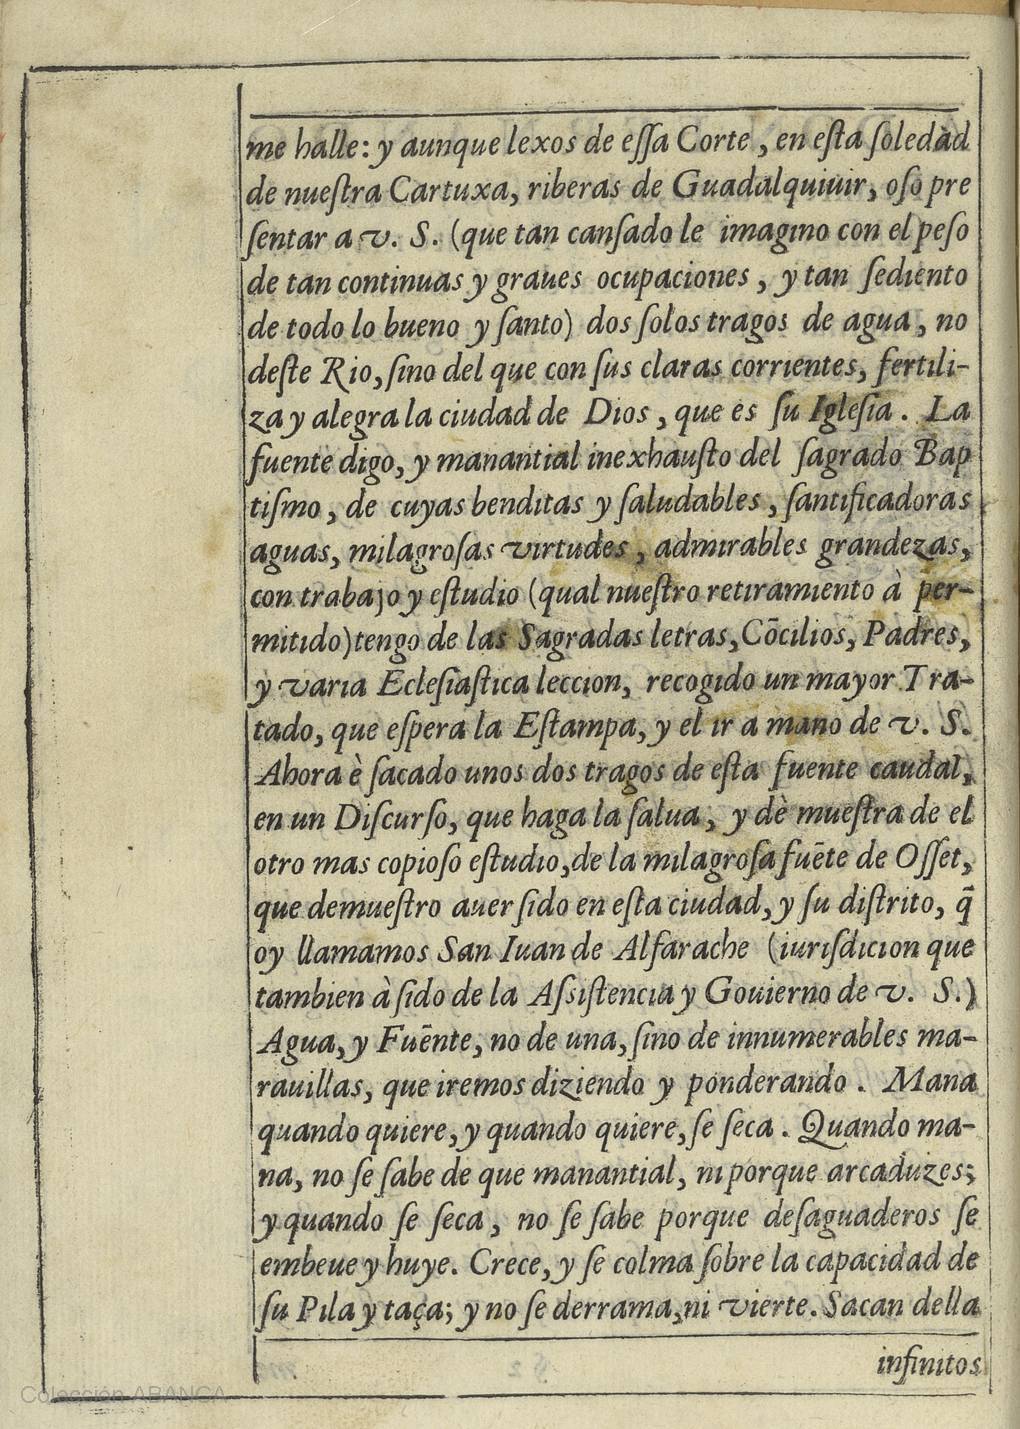 me halle: y aunque lexos de eſſa Corte, en eſta ſoledàd
de nueſtra Cartuxa, riberas de Guadalquiuir, oſo pre
ſentar a v. S. (que tan canſado le imagino con el peſo
de tan continuas y graues ocupaciones, y tan ſediento
de todo lo bueno y ſanto) dos ſolos tragos de agua, no
deſte Rio, ſino del que con ſus claras corrientes, fertili-
za y alegra la ciudad de Dios, que es ſu Igleſia. La
fuente digo, y manantial inexhauſto del ſagrado Bap
tiſmo, de cuyas benditas y ſaludables, ſantificadoras
aguas, milagroſas virtudes, admirables grandezas,
con trabajo y eſtudio (qual nueſtro retiramiento à per-
mitido) tengo de las Sagradas letras, Cōcilios, Padres,
y varia Ecleſiaſtica leccion, recogido un mayor Tra-
tado, que eſpera la Eſtampa, y el ir a mano de v. S.
Ahora è ſacado unos dos tragos de eſta fuente caudal,
en un Diſcurſo, que haga la ſalua, y dè mueſtra de el
otro mas copioſo eſtudio, de la milagroſa fuēte de Oſſet,
que demueſtro auer ſido en eſta ciudad, y ſu diſtrito, q̃
oy llamamos San Iuan de Alfarache (iuriſdicion que
tambien à ſido de la Aſsiſtencia y Gouierno de v. S.)
Agua, y Fuēnte, no de una, ſino de innumerables ma-
rauillas, que iremos diziendo y ponderando. Mana
quando quiere, y quando quiere, ſe ſeca. Quando ma-
na, no ſe ſabe de que manantial, ni porque arcaduzes;
y quando ſe ſeca, no ſe ſabe porque deſaguaderos ſe
embeue y huye. Crece, y ſe colma ſobre la capacidad de
ſu Pila y taça; y no ſe derrama, ni vierte. Sacan della
infinitos
Colección ABANCA